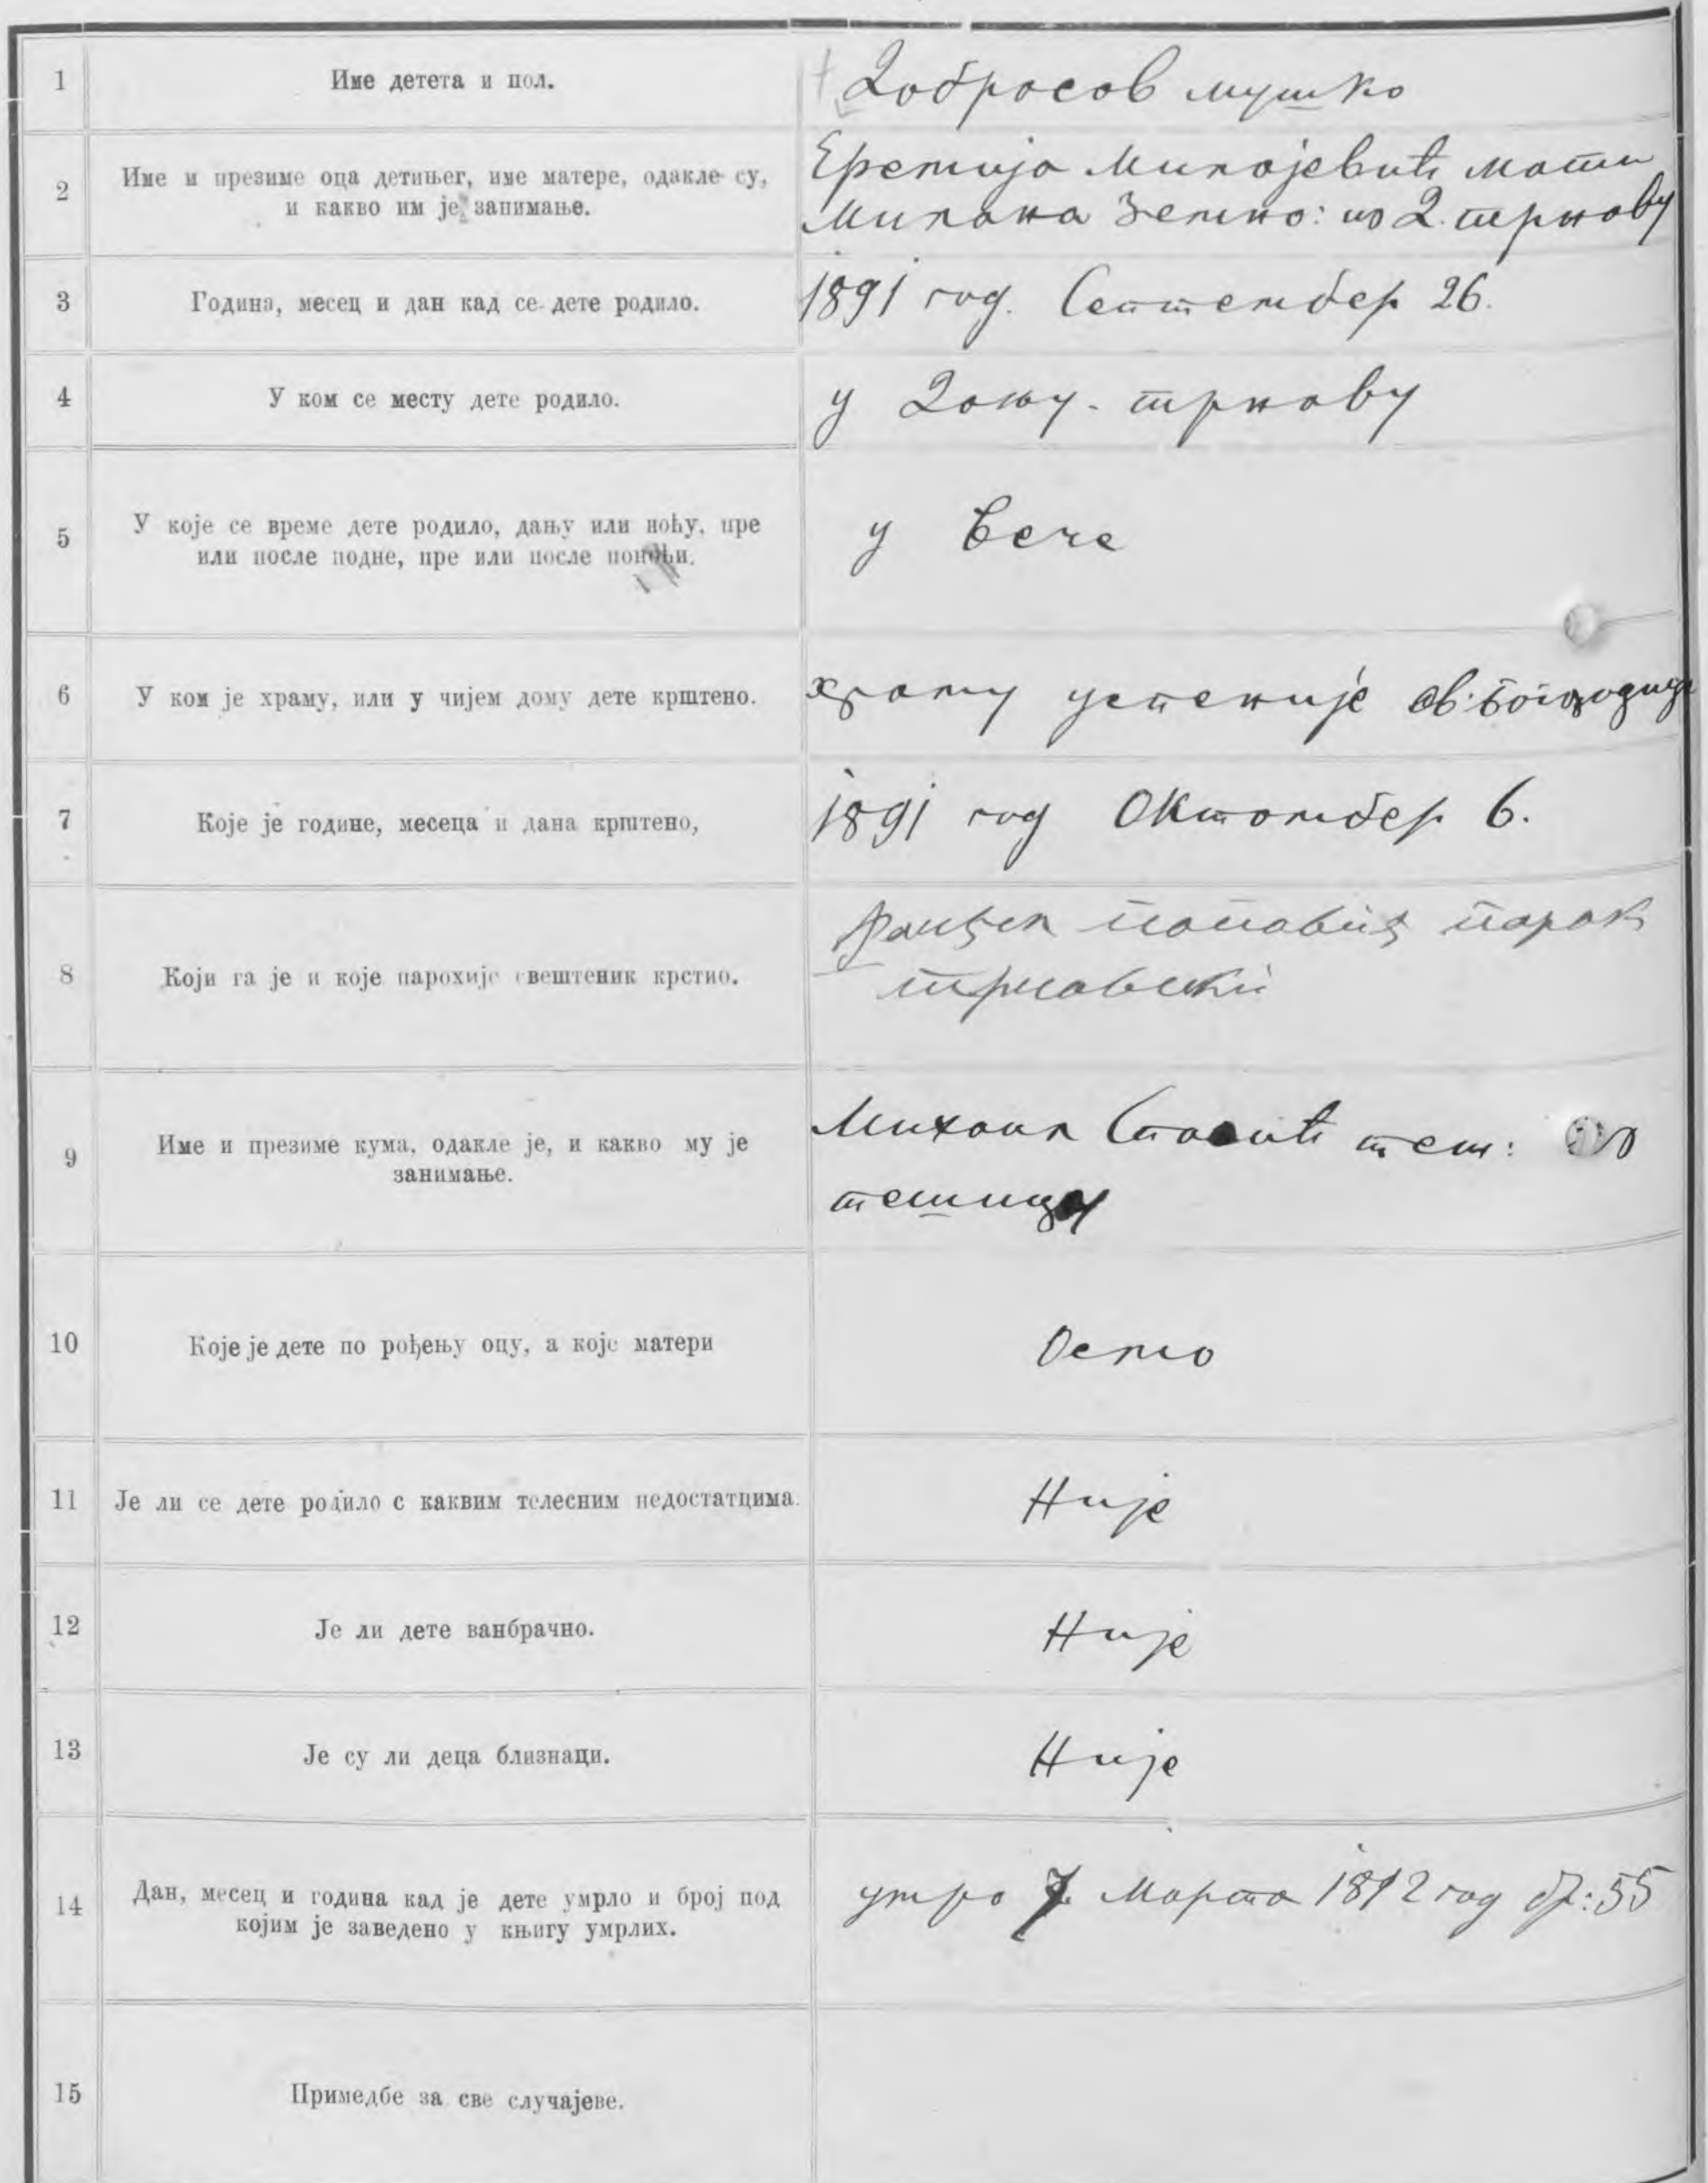 1 Име детета и пол.
Добросов мушко
2 Име и презиме оца детињег, име матере, одакле су,
и какво им је занимање.
Еремија Милојевић мати
Милана земљо: из Д. трнову
3 Година, месец и дан кад се дете родило.
1891 год. Септембер 26.
4 У ком се месту дете родило.
у Доњу - трнову
5 У које се време дете родило, дању или ноћу, пре
или после подне, пре или после поноћи.
у вече
6 У ком је храму, или у чијем дому дете крштено.
храму успеније св. богородице
7 Које је године, месеца и дана крштено,
1891 год Октомбер 6.
8 Који га је и које парохије свештеник крстио.
поповић парох
трновски
9 Име и презиме кума, одакле је, и какво му је
занимање.
Михаил теж:
10 Које је дете по рођењу оцу, а које матери
Осмо
11 Је ли се дете родило с каквим телесним недостатцима.
Није
12 Је ли дете ванбрачно.
Није
13 Је су ли деца близнаци.
Није
14 Дан, месец и година кад је дете умрло и број под
којим је заведено у књигу умрлих.
умро 7. Марта 1892 год бр: 55
15 Примедбе за све случајеве.